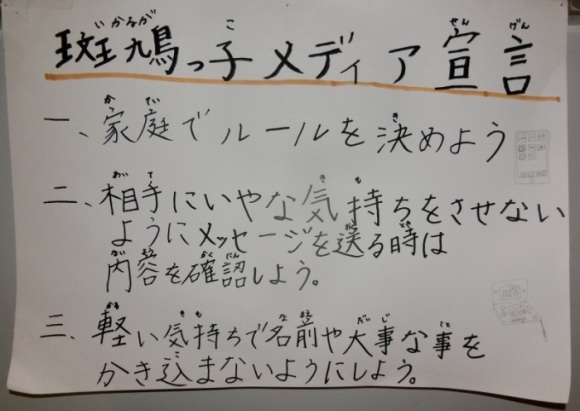 斑鳩っ子メディア宣言
一、家庭でルールを決めよう
二、相手にいやな気持ちをさせない
ようにメッセージを送る時は
内容を確認しよう。
三、軽い気持ちで名前や大事な事を
かき込まないようにしよう。